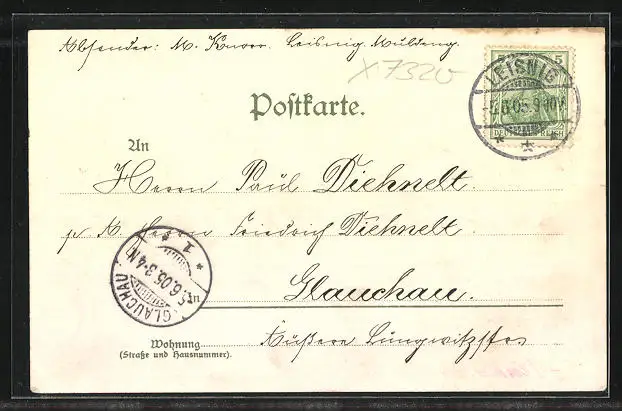 Absender: M. Knorr. Leisnig. Muldeng.
X7320
LEISNIG
5
5.6.05.9-10V.
DEUTSCHES REICH
Postkarte.
An
Herrn Paul Diehnelt.
p. A. Herrn Friedrich Diehnelt.
GLAUCHAU
1
5.6.05.3-4N
in
Glauchau.
Wohnung
(Straße und Hausnummer).
Äußere Lungwitzstr.